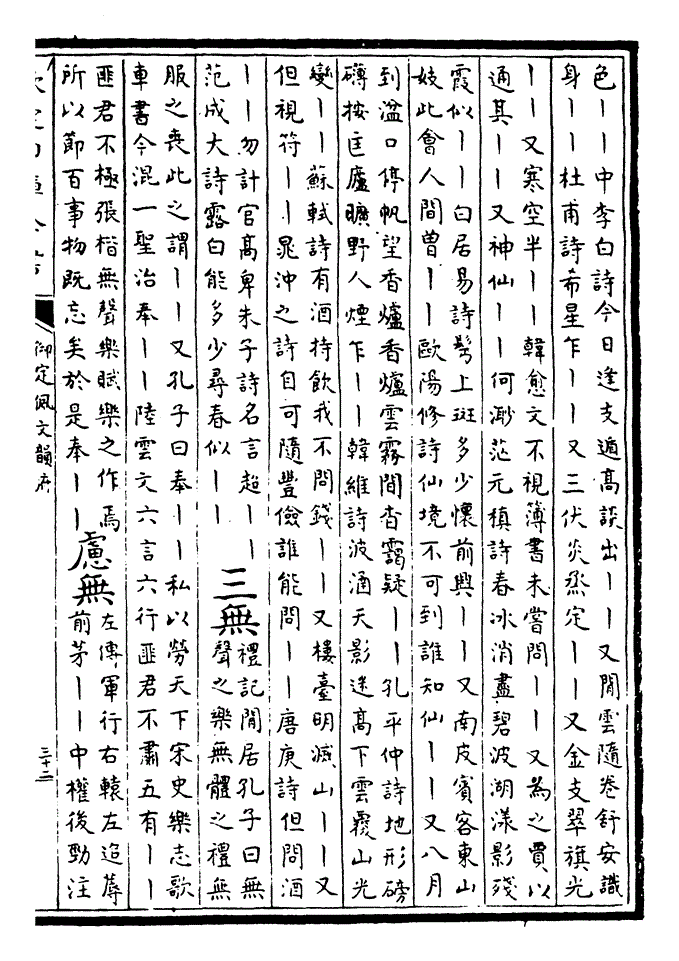 色丨丨中李白詩今日逢支遁高談出丨丨又閒雲隨卷舒安識
身丨丨杜甫詩希星乍丨丨又三伏炎烝定丨丨又金支翠旗光
丨丨又寒空半丨丨韓愈文不視薄書未嘗問丨丨又為之賈以
通其丨丨又神仙丨丨何渺茫元稹詩春冰消盡碧波湖漾影殘
霞似丨丨白居易詩鬢上斑多少懷前興丨丨又南皮賓客東山
妓此會人間曾丨丨歐陽修詩仙境不可到誰知仙丨丨又八月
到湓口停帆望香爐香爐雲霧間杳靄疑丨丨孔平仲詩地形磅
礴按匡廬曠野人煙乍丨丨韓維詩波涵天影迷高下雲覆山光
變丨丨蘇軾詩有酒持飲我不問錢丨丨又樓臺明滅山丨丨又
但視符丨丨晁沖之詩自可隨豐儉誰能問丨丨唐庚詩但問酒
丨丨勿計官高卑朱子詩名言超丨丨
范成大詩露白能多少尋春似丨丨
三無
禮記閒居孔子曰無
聲之樂無體之禮無
服之喪此之謂丨丨又孔子曰奉丨丨私以勞天下宋史樂志歌
車書今混一聖治奉丨丨陸雲文六言六行匪君不肅五有丨丨
匪君不極張楷無聲樂賦樂之作焉
所以節百事物既忘矣於是奉丨丨
慮無
左傳軍行右轅左追蓐
前茅丨丨中權後勁注
御定佩文韻府
三十二